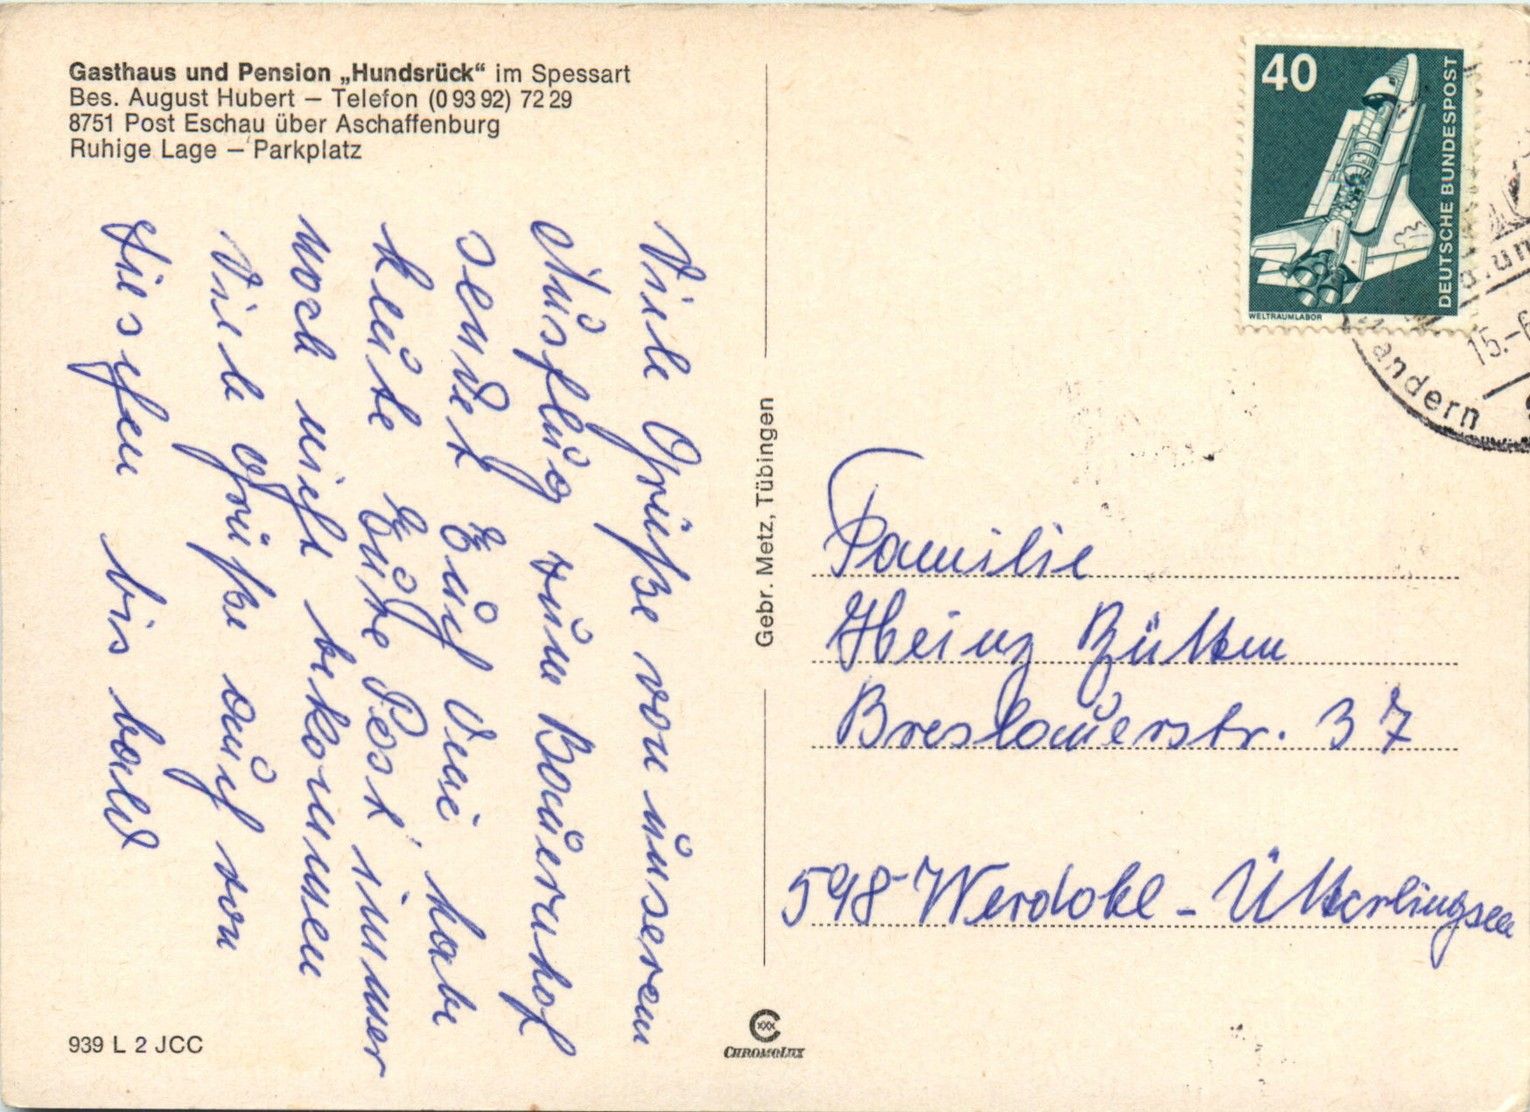 Gasthaus und Pension „Hundsrück“ im Spessart
Bes. August Hubert – Telefon (0 93 92) 72 29
8751 Post Eschau über Aschaffenburg
Ruhige Lage – Parkplatz
Viele Grüße von unserem
Ausflug zum Bauernhof
sendet Euch
heute habe
Eure Post immer
noch nicht bekommen
Viele Grüße auch von
bis bald
939 L 2 JCC
Gebr. Metz, Tübingen
CHROMOLUX
40
DEUTSCHE BUNDESPOST
WELTRAUMLABOR
15.-6
andern
Familie
Heinz Bütten
Breslauerstr. 37
598 Werdohl - Ütterlingsen